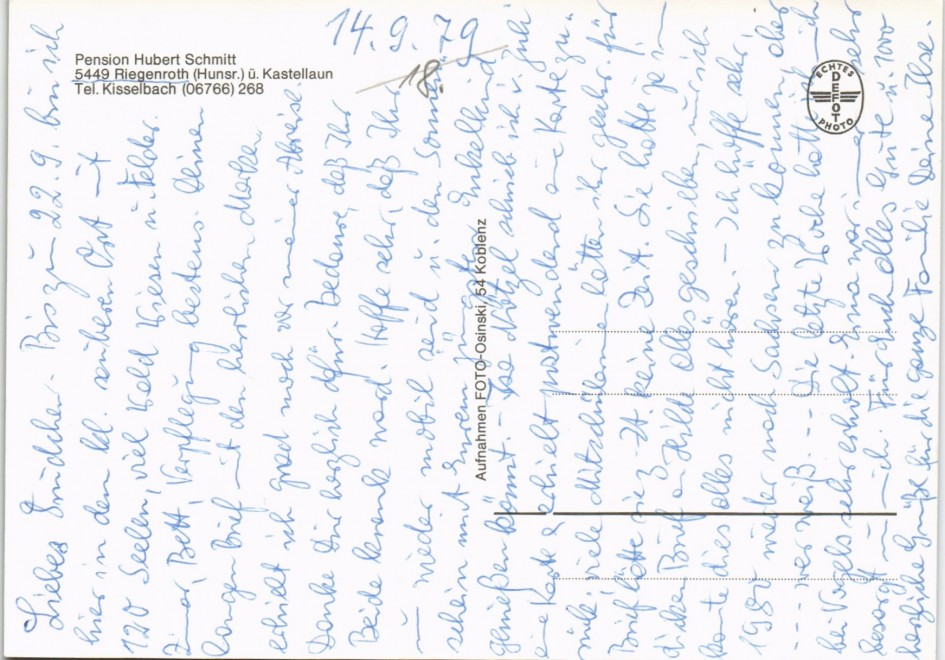 14.9.79
18.
Pension Hubert Schmitt
5449 Riegenroth (Hunsr.) ü. Kastellaun
Tel. Kisselbach (06766) 268
ECHTES
DEFOT
PHOTO
Aufnahmen FOTO-Osinski, 54 Koblenz
Liebes Bis zum 22.9. bin ich
hier in dem kl. sauberen Ort mit
120 Seelen, viel Wald Wiesen u. Felder.
Zimmer, Bett, Verpflegung bestens. Deinen
langen Brief mit den herrlichen Marken
erhielt ich grad noch vor meiner Abreise.
Danke Dir herzlich dafür. Bedaure, daß Ihr
Beide krank ward. Hoffe sehr, daß Ihr
nun wieder mobil seid u. den Sonnen-
schein mit Eurem Enkelkind
genießen könnt. - schrieb ich im Juli
eine Karte & erhielt postwendend eine Karte zu-
rück, viele Mitschülerinnen hätten ihr geschr. für
Brief hätte sie z. Zt. keine Zeit. Sie hatte ja im
dicken Brief an Hilde alles geschrieben nur ich
konnte dies alles nicht hören. - Ich hoffe sehr,
1980 wieder nach Sachsen zu kommen, aber
--- wer weiß. -- Die letzte Woche hatte ich
bei Vogels sehr erholt. Erna war sehr
besorgt um mich. Für Euch alles Gute u. 1000
herzliche Grüße für die ganze Familie Deine Ilse.